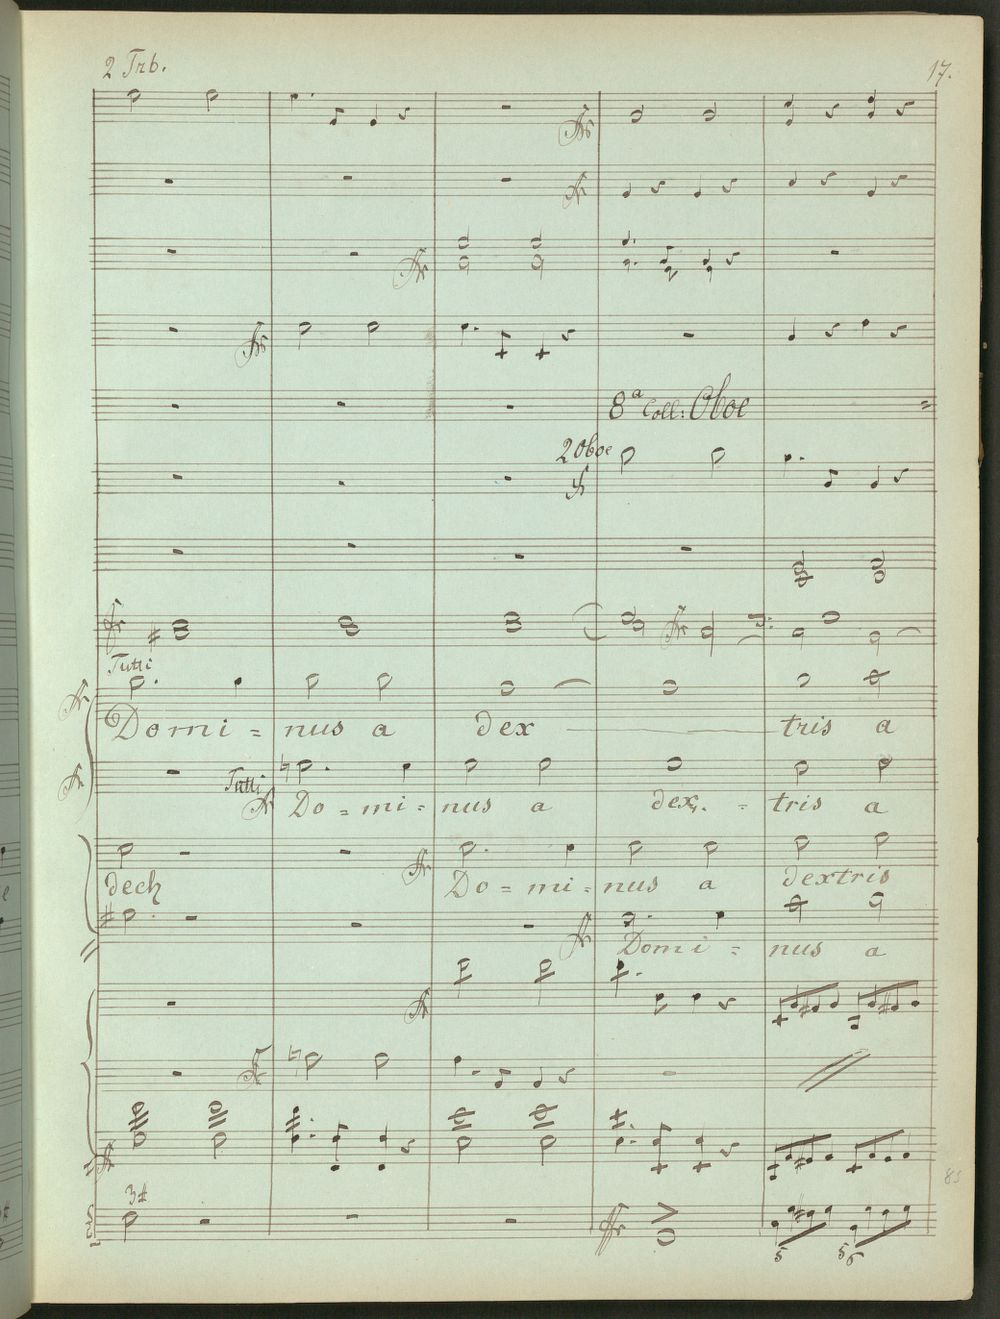 2 Trb.
17.
8ª Coll: Oboe
2 Oboe
Tutti
Domi = nus a dex tris a
Tutti
Do = mi = nus a dex. = tris a
dech
Do = mi = nus a dextris
Domi = nus a
3#
85
5 5 6